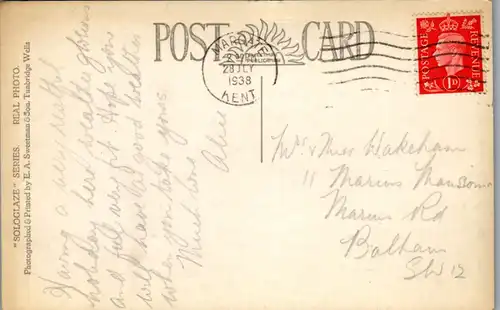 POST CARD
"SOLOGLAZE" SERIES. REAL PHOTO.
Photographed & Printed by E. A. Sweetman & Son, Tunbridge Wells
MARGATE
28 JLY
1938
KENT
POSTAGE
REVENUE
1D
Having a wonderful
holiday here weather glorious
and feel very fit. Hope you
will have as good weather
when you take yours
Much love
Alice
Mr & Mrs Wakeham
11 Marius Mansions
Marius Rd
Balham
SW 12